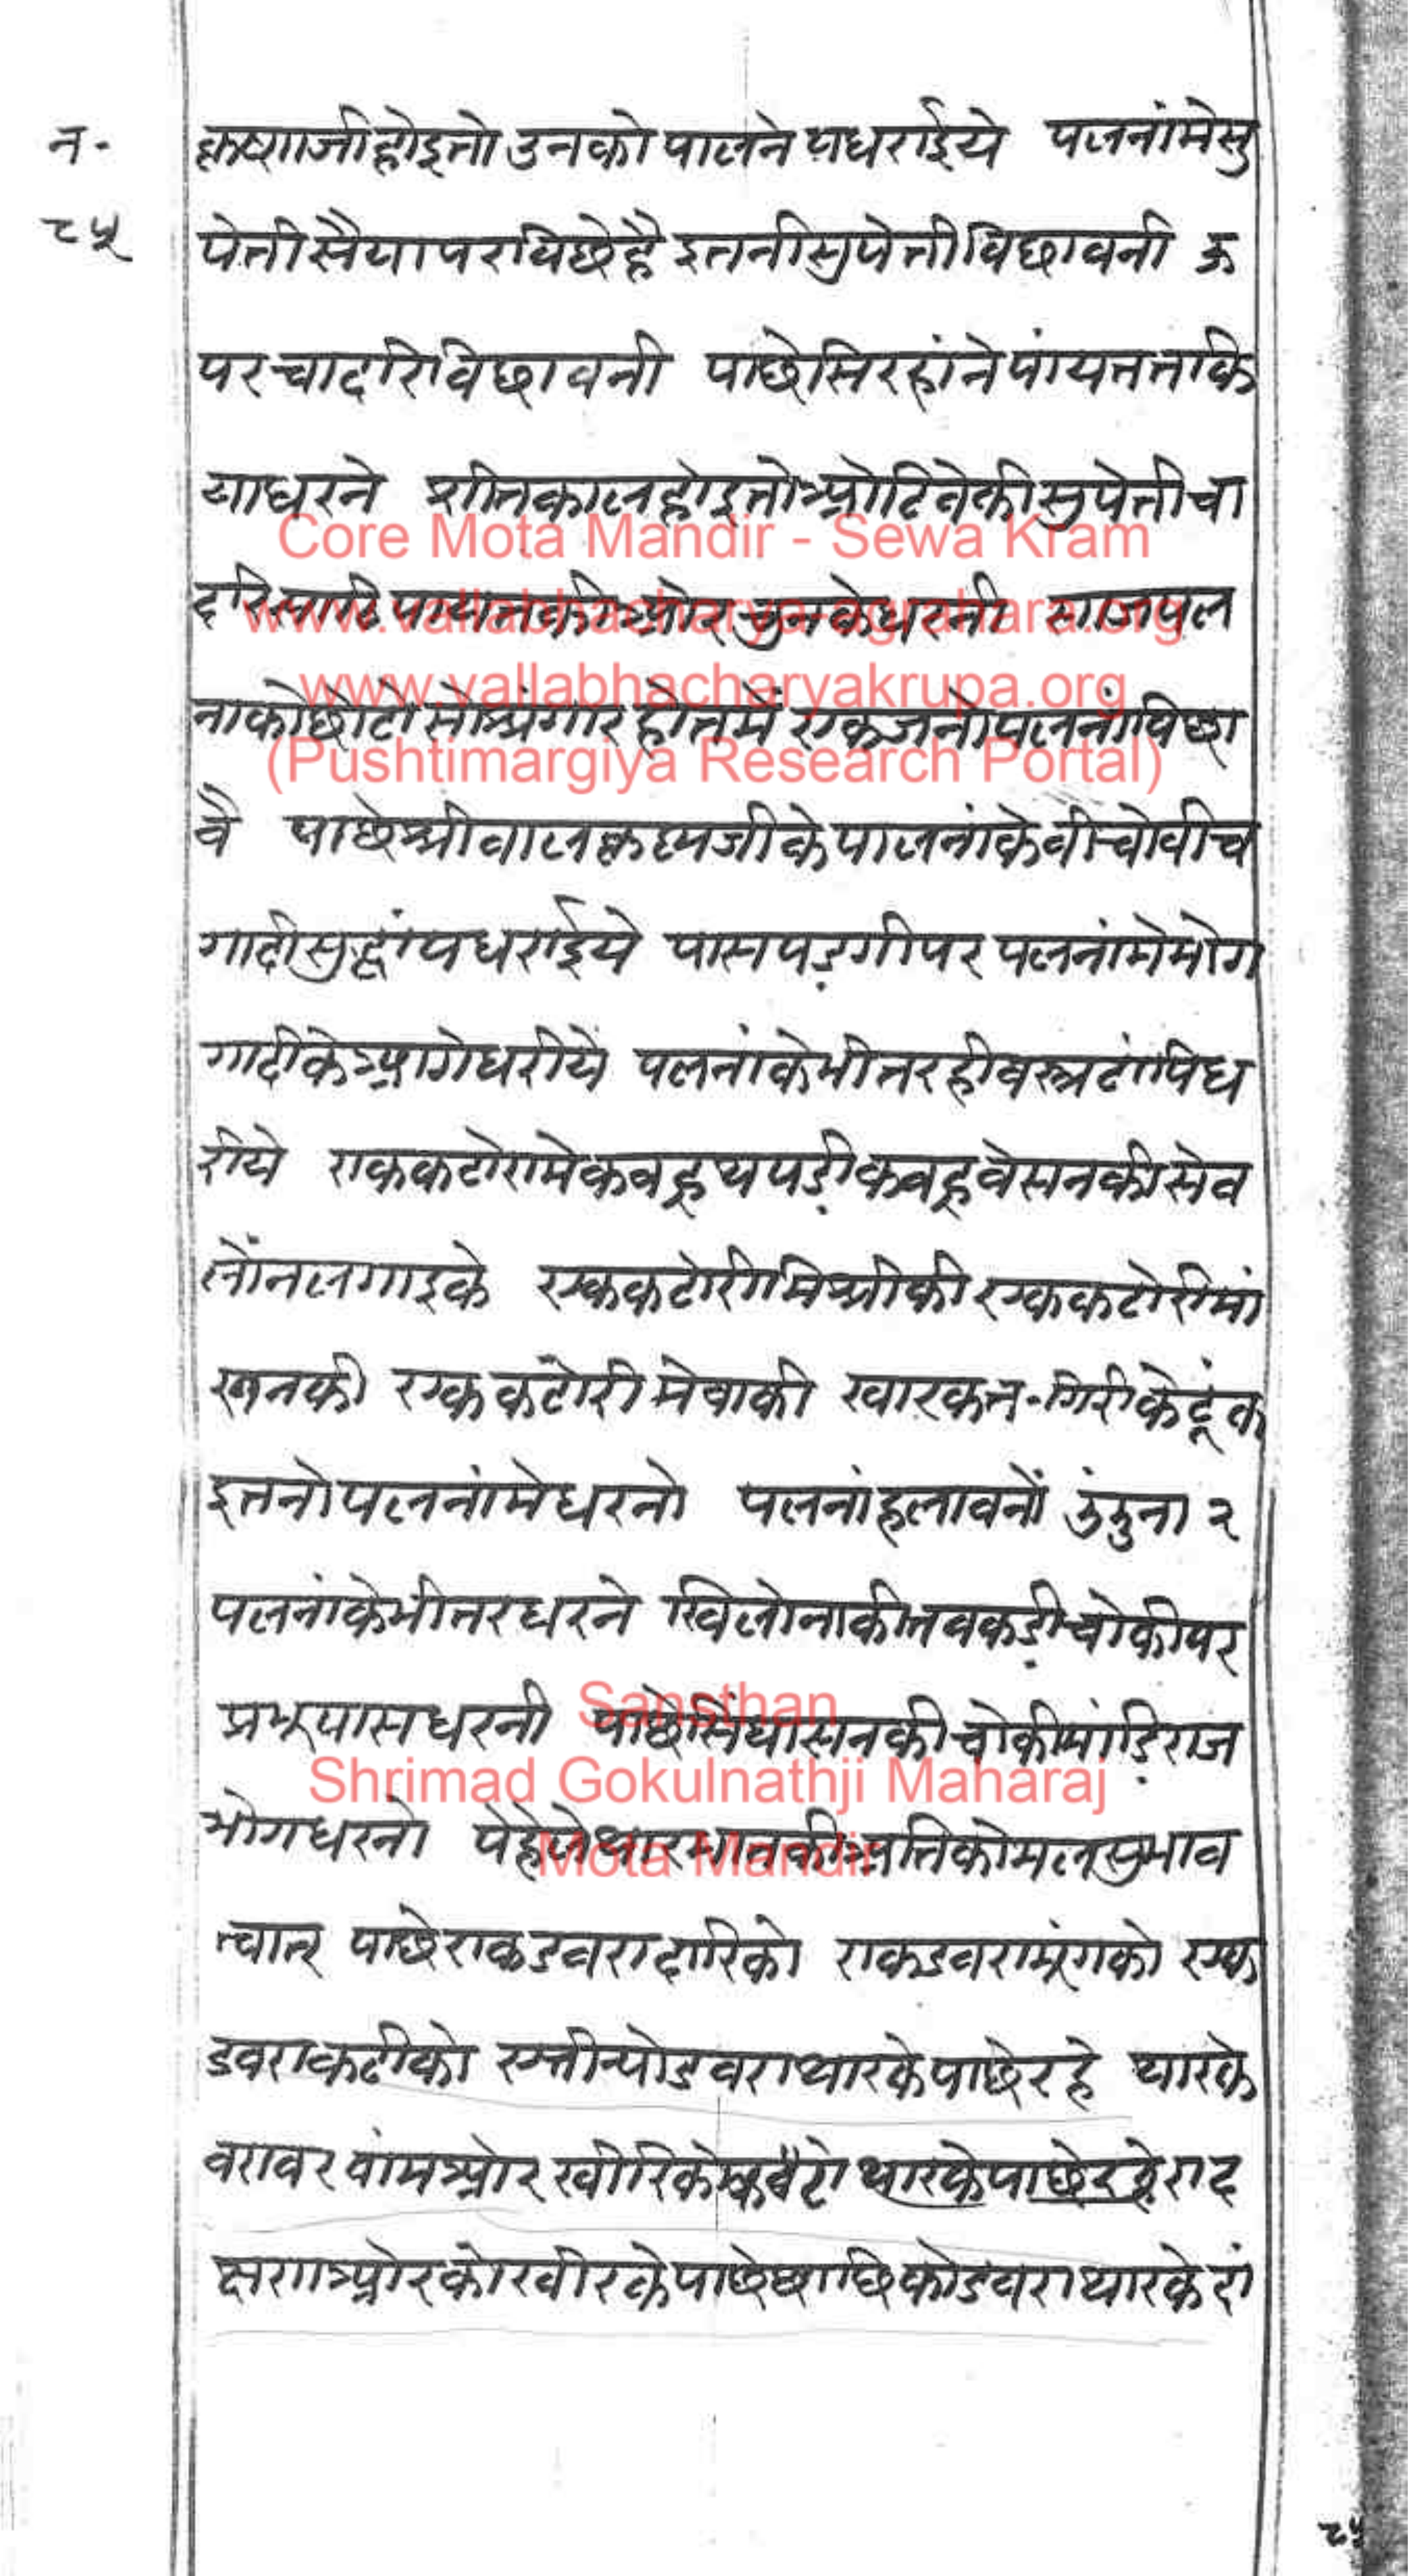 न॰
८५
कृष्णजी होइ तो उनको पालने पधराईये पलनां मे सु
पेती सैया पर विछे है इतनी सुपेती विछावनी ऊ
पर चादरि विछावनी पाछे सिरहांने पांयत तकि
या धरने शीतकाल होइ तो ओढिवे की सुपेती चा
दरि की ओर चुनके धरनी साज पल
ना को छोटो सो श्रृंगार होत में एक जनो पलनां विछा
वै पाछे श्री वालकृष्णजी के पालनां के वीचोवीच
गादी सुद्धां पधराईये पास पड़गी पर पलनां मे भोग
गादी के आगे धरीयें पलनां के भीतर ही वस्त्र ढांपि ध
रीये एक कटोरा मे कवहू थपड़ी कवहू वेसन की सेव
लोंन लगाइके एक कटोरी मिश्री की एक कटोरी मां
खन की एक कटोरी मेवा की खारक न॰ गिरी के टूंक
इतनो पलनां मे धरनो पलनां हलावनों झुंझुना २
पलनां के भीतर धरने खिलोना की तवकड़ी चोकी पर
प्रभु पास धरनी पाछे सिंघासन की चोकी मांड़ि राज
भोग धरनो पेहेले थार भात की अति कोमल सुभाव
चात्र पाछे एक डवरा दारि को एक डवरा मूंग को एक
डवरा कढी को ए तीन्यो डवरा थार के पाछे रहे थार के
वरावर वांम ओर खीरि को थार के पाछे रहे द
क्षण ओर को खीर के पाछे छाछि को डवरा थार के
Core Mota Mandir - Sewa Kram
www.vallabhacharya-agrahara.org
www.vallabhacharyakrupa.org
(Pushtimargiya Research Portal)
Sansthan
Shrimad Gokulnathji Maharaj
Mota Mandir
८५